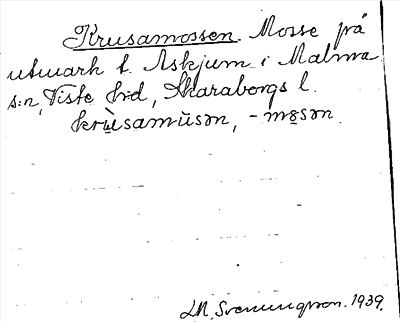 Krusamossen. Mosse på
utmark t. Askjum i Malma
s:n, Viste hd, Skaraborgs l.
krùsamūsən, -mo̤sən.
LM. Svenungsson. 1939.